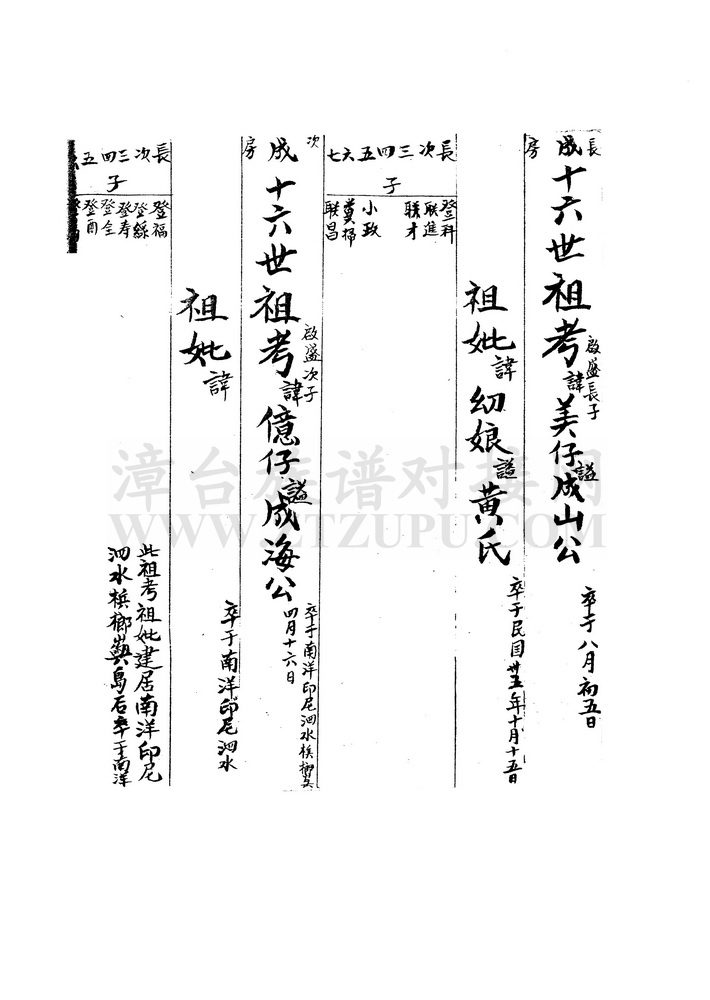 長房
成十六世祖考諱美仔謚成山公
啟盛長子
卒于八月初五日
祖妣諱幼娘謚黃氏
卒于民国卅五年十月十五日
長次三四五六七
子
登科
联進
联才
小政
奠掃
联昌
次房
成十六世祖考諱億仔謚成海公
啟盛次子
卒于南洋印尼泗水梹榔
四月十六日
祖妣諱
卒于南洋印尼泗水
長次三四五
子
登福
登綠
登寿
登全
登酉
此祖考祖妣建居南洋印尼
泗水梹榔島后卒于南洋
漳台族谱对接网
WWW.ZTZUPU.COM